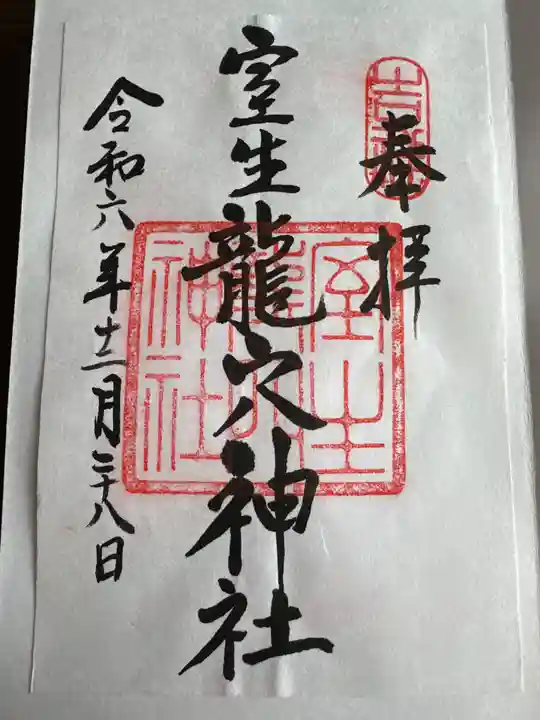 奉拝
室生龍穴神社
令和六年十二月二十八日
室生
龍穴
神社